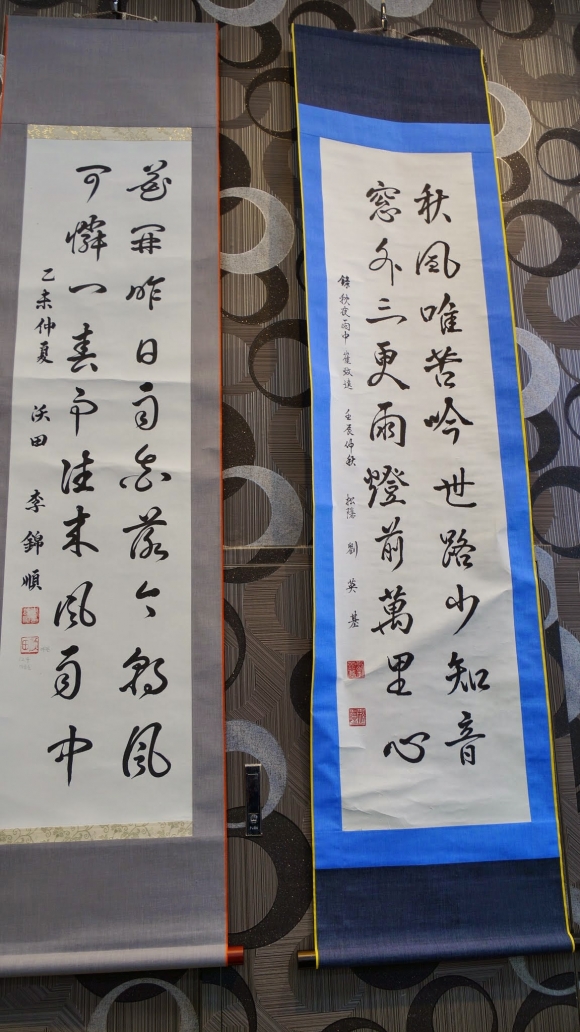 秋風唯苦吟世路少知音
窓外三更雨燈前萬里心
錄秋夜雨中 崔致遠 壬辰仲秋 松隱 劉英基
花開昨日雨花落今朝風
可憐一春事往來風雨中
乙未仲夏 沃田 李錦順